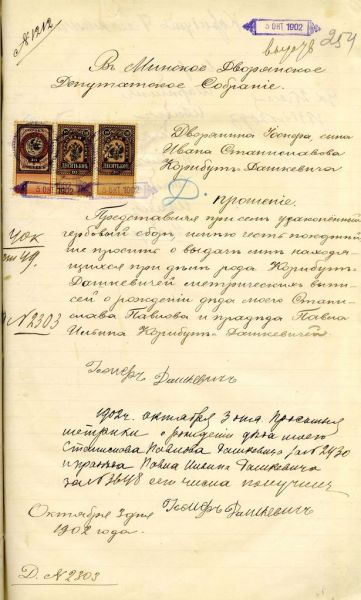 № 1212
5 ОКТ 1902
254
Въ Минское Дворянское
Депутатское Собраніе.
Дворянина Іосифа, сына
Ивана Станиславова
Корибутъ-Дашкевича
5 ОКТ 1902
5 ОКТ 1902
Прошеніе.
Представляя при семъ узаконенный
гербовый сборъ, имѣю честь покорнѣй-
ше просить о выдачѣ мнѣ находя-
щихся при дѣлѣ рода Корибутъ-
Дашкевичей метрическихъ выпи-
сей о рожденіи дѣда моего Стани-
слава Павлова и прадѣда Павла
Ильина Корибутъ-Дашкевичей.
№ 2303
Іосифъ Дашкевичъ
1902 г. октября 3 дня Просимыя
метрики о рожденіи дѣда моего
Станислава Павлова Дашкевича за № 2430
и прадѣда Павла Ильина Дашкевича
за № 3648 сего числа получилъ
Іосифъ Дашкевичъ
Октября 3 дня
1902 года.
Д. № 2303